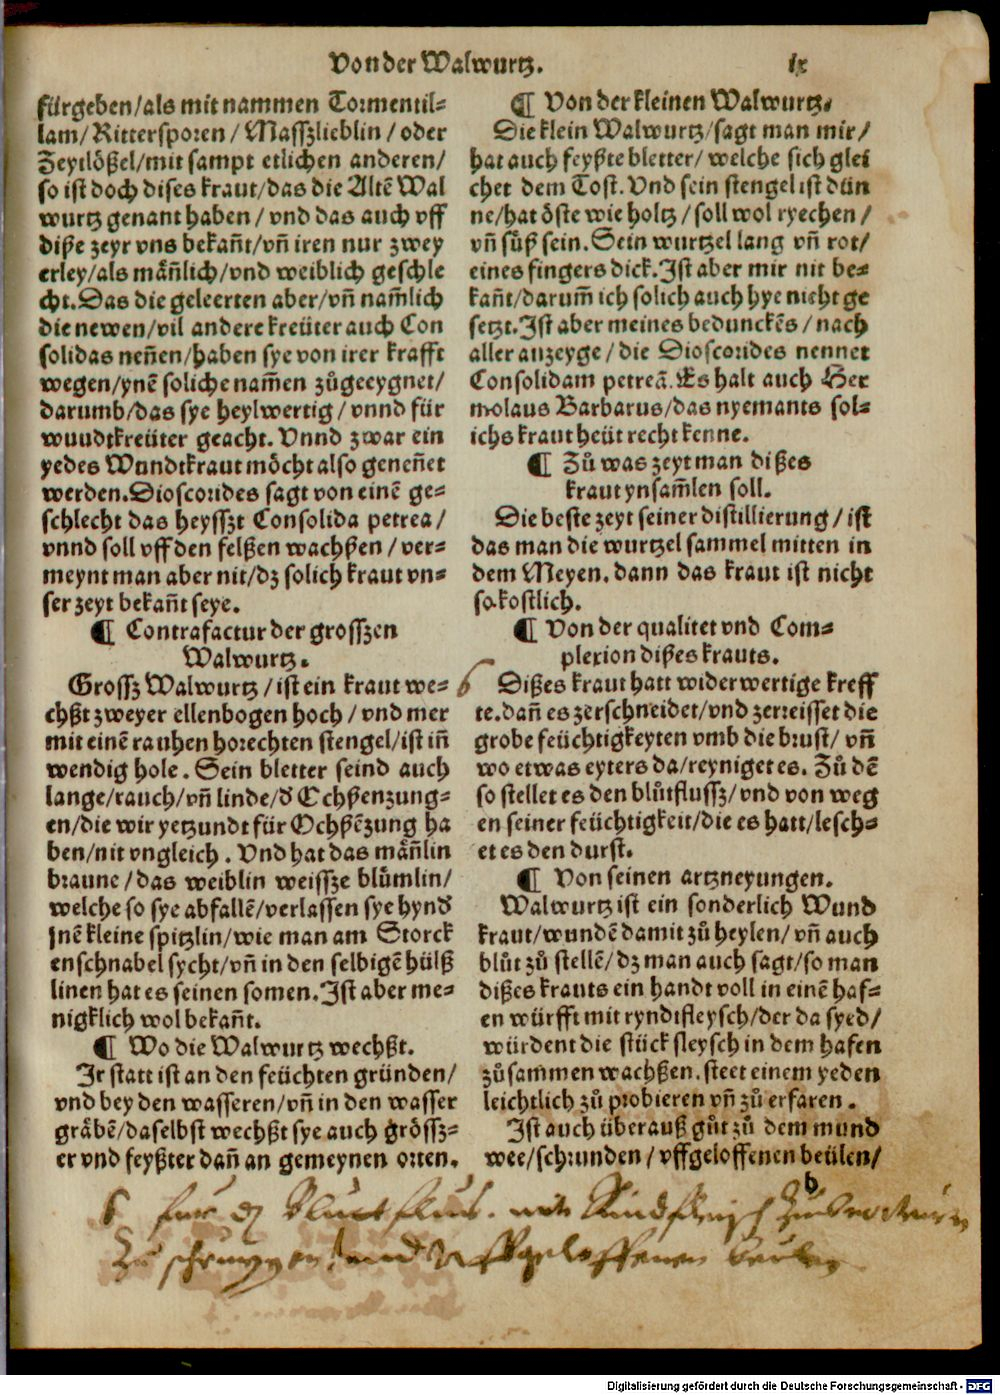 Von der Walwurtz. ix
fürgeben/als mit nammen Tormentil=
lam/Rittersporen/Massʒlieblin/oder
Zeytlößel/mit sampt etlichen anderen/
so ist doch dises kraut/das die Altē Wal
wurtz genant haben/vnd das auch vff
diße zeyt vns bekañt/vñ iren nur zwey
erley/als mäñlich/vnd weiblich geschle
cht. Das die geleerten aber/vñ nam̃lich
die newen/vil andere kreüter auch Con
solidas neñen/haben sye von irer krafft
wegen/ynē soliche nam̃en zůgeeygnet/
darumb/das sye heylwertig/vnnd für
wundtkreüter geacht. Vnnd zwar ein
yedes Wundtkraut möcht also geneñet
werden. Dioscorides sagt von einē ge=
schlecht das heyssʒt Consolida petrea/
vnnd soll vff den felßen wachßen/ver=
meynt man aber nit/dz solich kraut vn=
ser zeyt bekañt seye.
¶ Contrafactur der grossʒen
Walwurtz.
Grossʒ Walwurtz/ist ein kraut we=
chßt zweyer ellenbogen hoch/vnd mer
mit einē rauhen horechten stengel/ist iñ
wendig hole. Sein bletter seind auch
lange/rauch/vñ linde/d Ochßenzung=
en/die wir yetzundt für Ochßēzung ha
ben/nit vngleich. Vnd hat das mäñlin
braune/das weiblin weissʒe blůmlin/
welche so sye abfallē/verlassen sye hynd
jnē kleine spitzlin/wie man am Storck
enschnabel sycht/vñ in den selbigē hülß
linen hat es seinen somen. Ist aber me=
nigklich wol bekañt.
¶ Wo die Walwurtz wechßt.
Ir statt ist an den feüchten gründen/
vnd bey den wasseren/vñ in den wasser
gräbē/daselbst wechßt sye auch grössʒ=
er vnd feyßter dañ an gemeynen orten.
¶ Von der kleinen Walwurtz.
Die klein Walwurtz/sagt man mir/
hat auch feyßte bletter/welche sich glei
chet dem Tost. Vnd sein stengel ist dün
ne/hat öste wie holtz/soll wol ryechen/
vñ süß sein. Sein wurtzel lang vñ rot/
eines fingers dick. Ist aber mir nit be=
kañt/darum̃ ich solich auch hye nicht ge
setzt. Ist aber meines bedunckēs/nach
aller anzeyge/die Dioscorides nennet
Consolidam petreā. Es halt auch Her
molaus Barbarus/das nyemants sol=
ichs kraut heüt recht kenne.
¶ Zů was zeyt man dißes
kraut ynsam̃len soll.
Die beste zeyt seiner distillierung/ist
das man die wurtzel sammel mitten in
dem Meyen. dann das kraut ist nicht
so kostlich.
¶ Von der qualitet vnd Com=
plexion dißes krauts.
6 Dißes kraut hatt widerwertige kreff
te. dañ es zerschneidet/vnd zerreisset die
grobe feüchtigkeyten vmb die brust/vñ
wo etwas eyters da/reyniget es. Zů dē
so stellet es den blůtflussʒ/vnd von weg
en seiner feüchtigkeit/die es hatt/lesch=
et es den durst.
¶ Von seinen artzneyungen.
Walwurtz ist ein sonderlich Wund
kraut/wundē damit zů heylen/vñ auch
blůt zů stellē/dz man auch sagt/so man
dißes krauts ein handt voll in einē haf=
en würfft mit ryndtfleysch/der da syed/
würdent die stück fleysch in dem hafen
zůsammen wachßen. steet einem yeden
leichtlich zů probieren vñ zů erfaren.
Ist auch überauß gůt zů dem mund
wee/schrunden/vffgeloffenen beülen/
b
6 fur dz Bluet flus. mit Rindfleisch
Zu schrunden/und Uffgeloffenen beulen
Digitalisierung gefördert durch die Deutsche Forschungsgemeinschaft - DFG